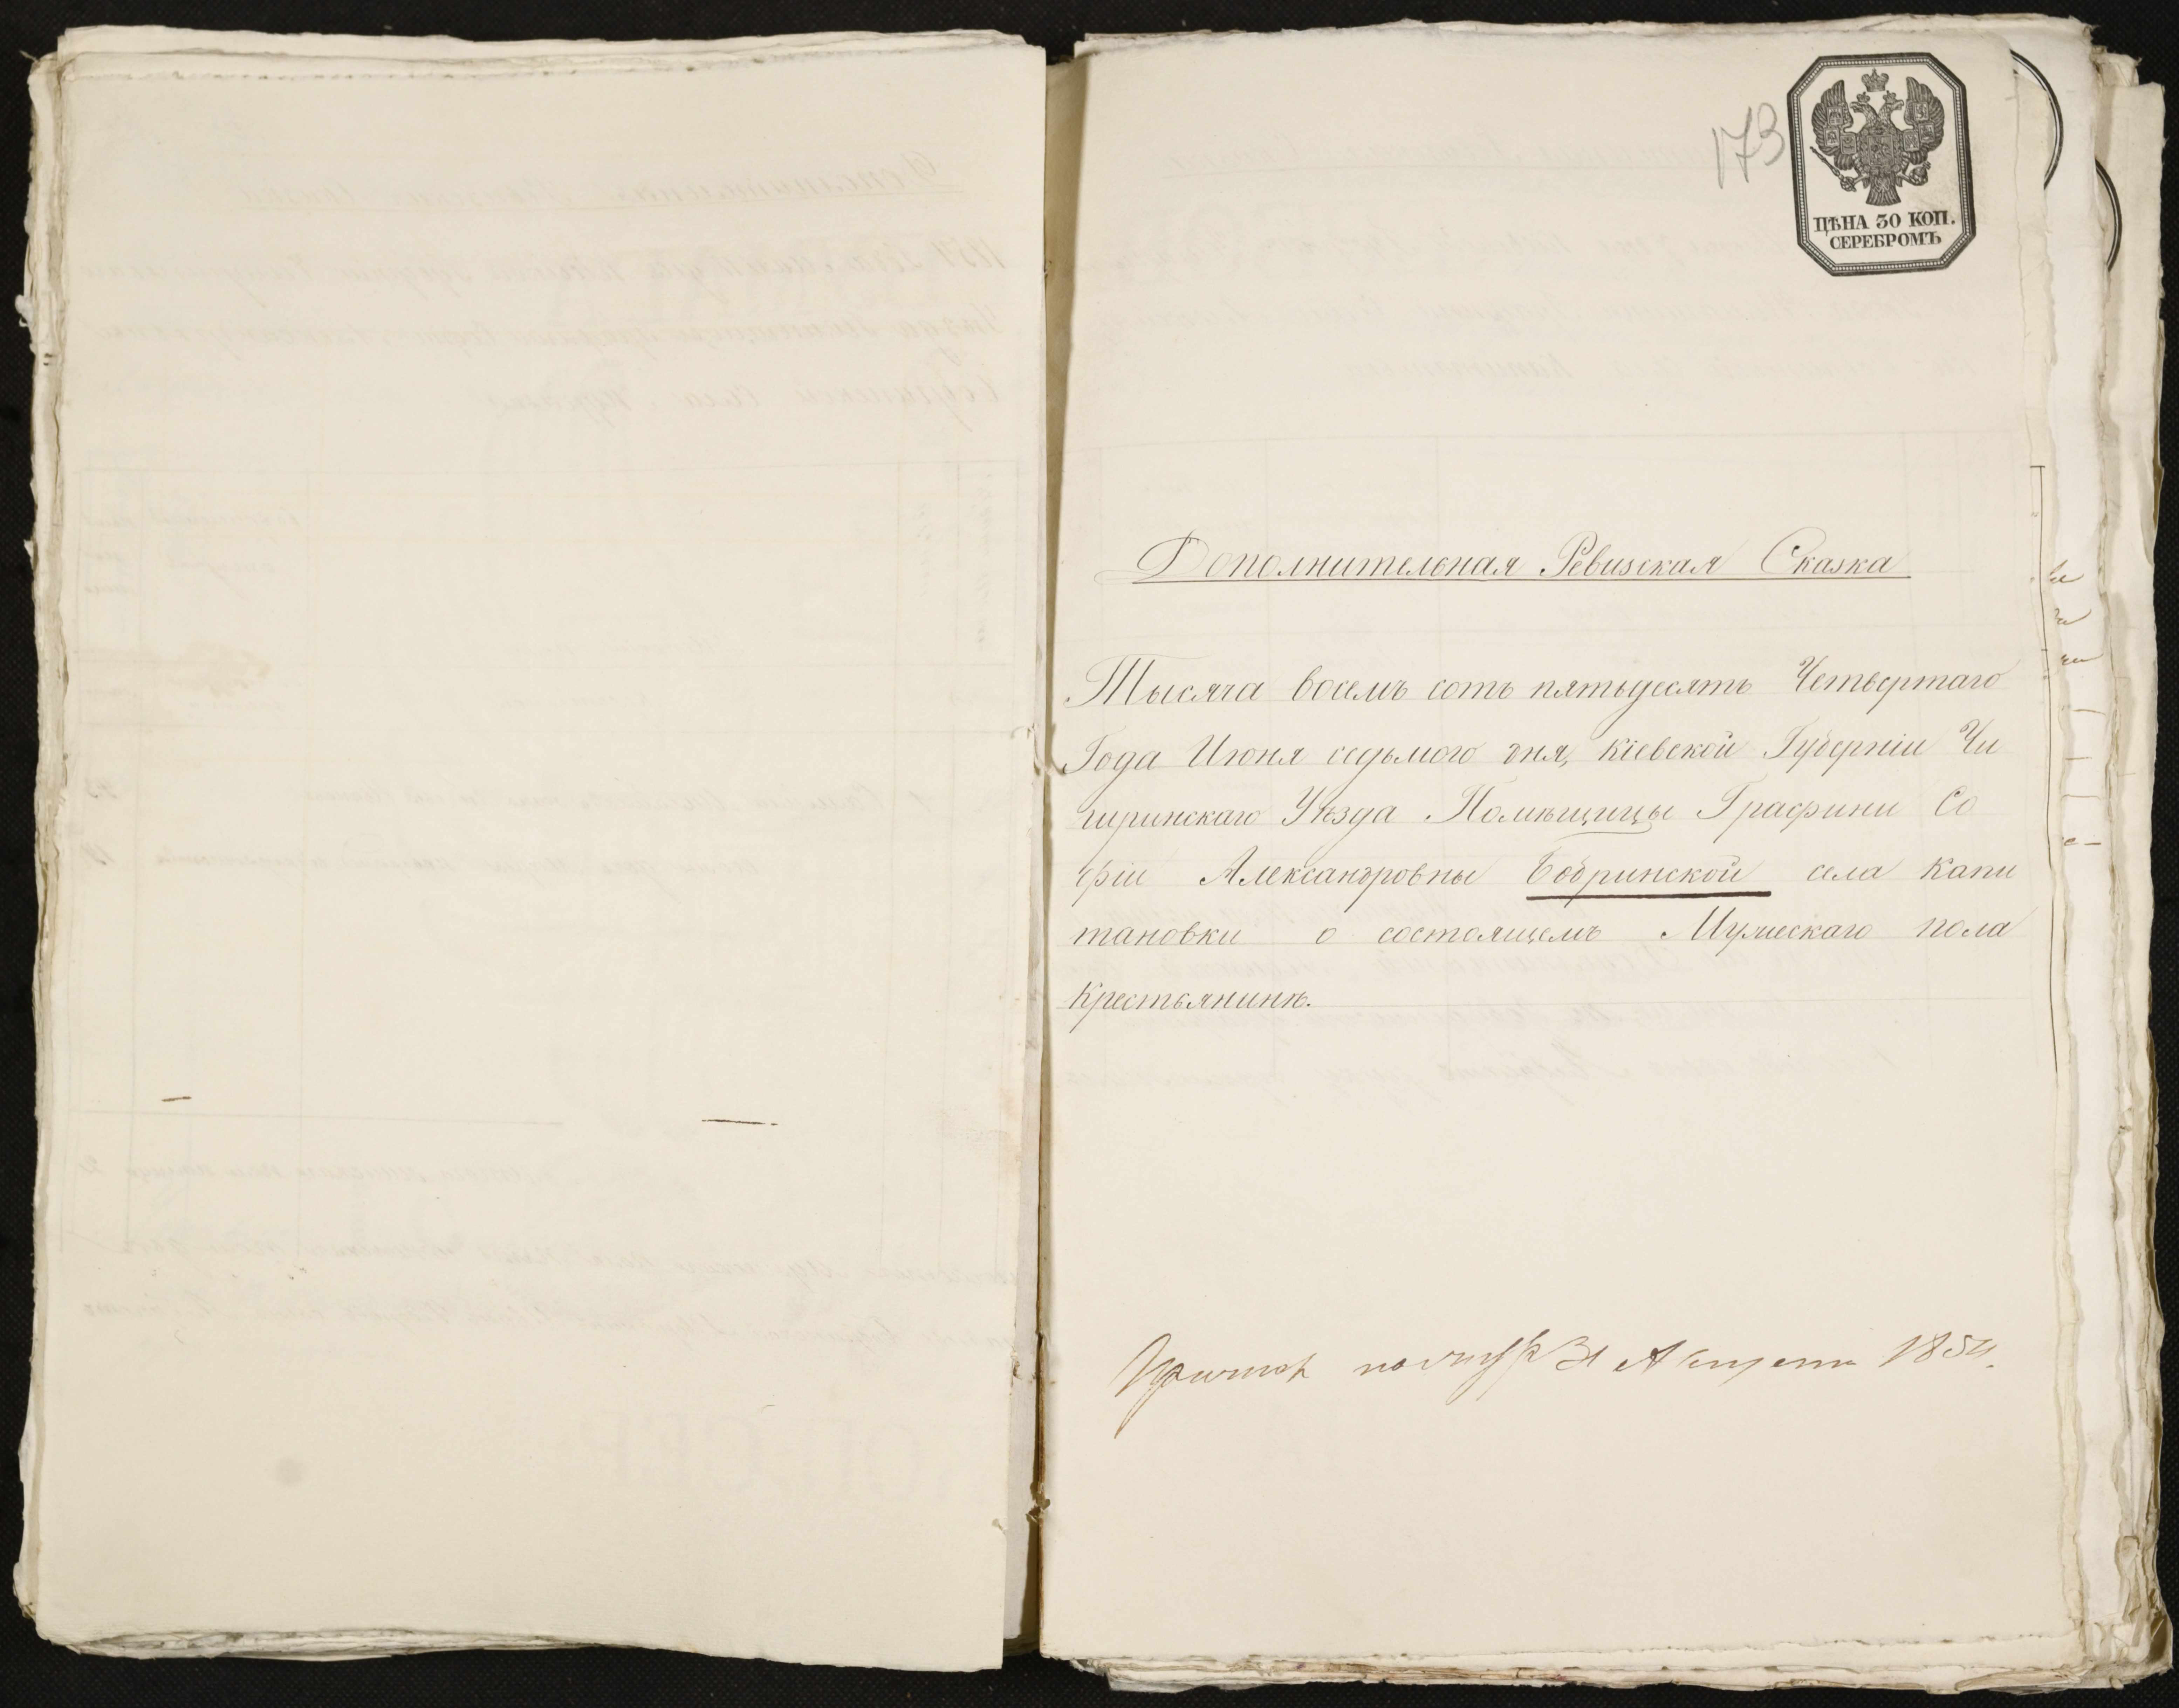 173
ЦѢНА 30 КОП.
СЕРЕБРОМЪ
Дополнительная Ревизская Сказка
Тысяча восемь сотъ пятьдесятъ Четвертаго
Года Июня седьмого дня, Кіевской Губерніи Чи
гиринскаго Уѣзда Помѣщицы Графини Со
фіи Александровны Бобринской села Капи
тановки о состоящемъ Мужескаго пола
Крестьянинѣ.
31 Августа 1854.